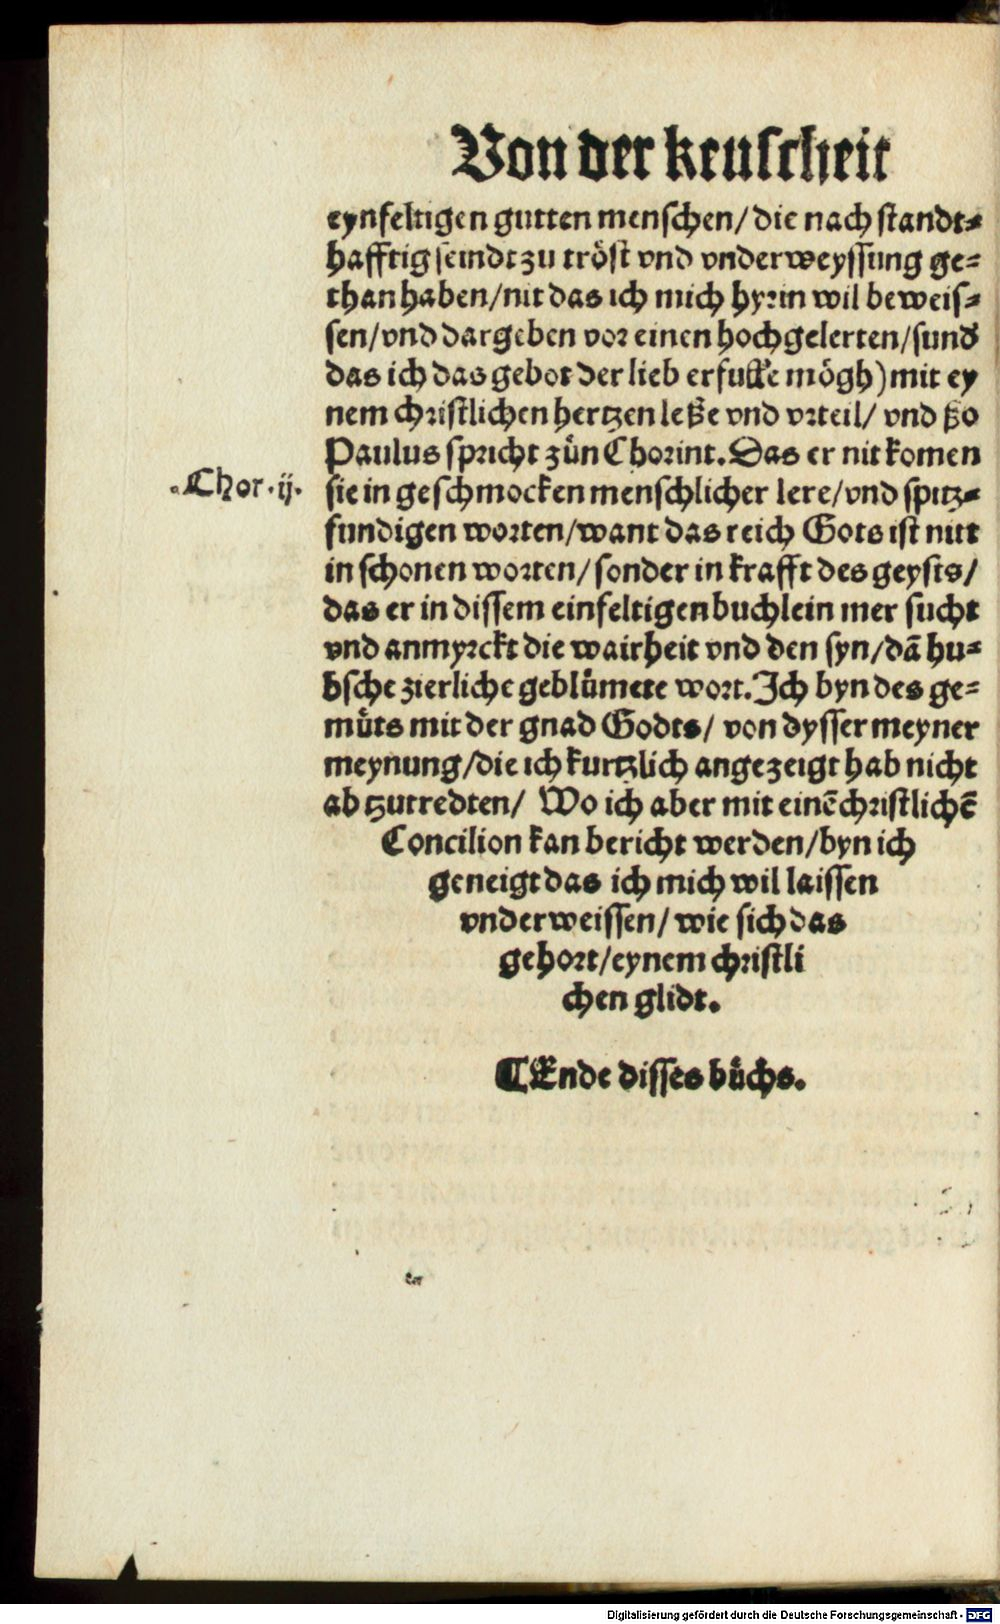 Von der keuscheit
eynfeltigen gutten menschen/ die nach standt⸗
hafftig seindt zu tröst vnd vnderweyssung ge⸗
than haben/nit das ich mich hyrin wil beweis⸗
sen/vnd dargeben vor einen hochgelerten/sund̕
das ich das gebot der lieb erfulle mögh) mit ey
nem christlichen hertzen leße vnd vrteil/ vnd ßo
Paulus spricht zůn Chorint. Das er nit komen
.Chor.ij.
sie in geschmocken menschlicher lere/vnd spitz⸗
fundigen worten/want das reich Gots ist nitt
in schonen worten/ sonder in krafft des geysts/
das er in dissem einfeltigen buchlein mer sucht
vnd anmyrckt die wairheit vnd den syn/dā hu⸗
bsche zierliche geblůmete wort. Ich byn des ge⸗
můts mit der gnad Godts/ von dysser meyner
meynung/die ich kurtzlich angezeigt hab nicht
ab tzutredten/ Wo ich aber mit einē christlichē
Concilion kan bericht werden/byn ich
geneigt das ich mich wil laissen
vnderweissen/ wie sich das
gehort/eynem christli
chen glidt.
⸿Ende disses bůchs.
Digitalisierung gefördert durch die Deutsche Forschungsgemeinschaft - DFG